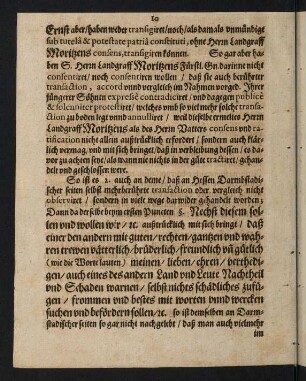 10
Ernst aber/ haben weder transigiret/ noch/ als damals unmündige
sub tutelâ & potestate patriâ constituti, ohne Herrn Landgraff
Moritzens consens, transigiren können. So gar aber ha-
ben S. Herrn Landgraff Moritzens Fürstl. Gn. darinne nicht
consentiret/ noch consentiren wollen/ daß sie auch berührter
transaction, accord unnd vergleich im Nahmen vorged. Ihrer
jüngerer Söhnen expresse contradiciret/ und dagegen publicè
& solenniter protestiret/ welches umb so viel mehr solche transa-
ction zu boden legt unnd annulliret/ weil dieselbe ermeltes Herrn
Landgraff Moritzens als des Herrn Vatters consens und ra-
tification nicht allein außtrücklich erfordert/ sondern auch klär-
lich vermag, und mit sich bringet/ daß in verbleibung dessen/ es da-
vor zu achten seyn/ als wann nichts in der güte tractiret/ gehande-
let und geschlossen were.
So ist es 2. auch an deme/ daß an Hessen Darmbstadi-
scher seiten selbst mehrberührte transaction oder vergleich nicht
observiret/ sondern in viele wege darwider gehandelt worden;
Dann da derselbe beym ersten Puncten §. Nechst diesem sol-
len und wollen wir/ &c. außtrücklich mit sich bringt/ daß
einer den andern mit guten/ rechten/ gantzen und wah-
ren trewen vätterlich/ brüderlich/ freundlich uñ gütlich
(wie die Worte lauten) meinen/ lieben/ ehren/ verthedi-
gen/ auch eines des andern Land und Leute Nachtheil
und Schaden warnen/ selbst nichts schädliches zufü-
gen/ frommen und bestes mit worten unnd wercken
suchen und befördern sollen/ &c. so ist demselben an Darm-
stadischer seiten so gar nicht nachgelebt/ daß man auch vielmehr
im